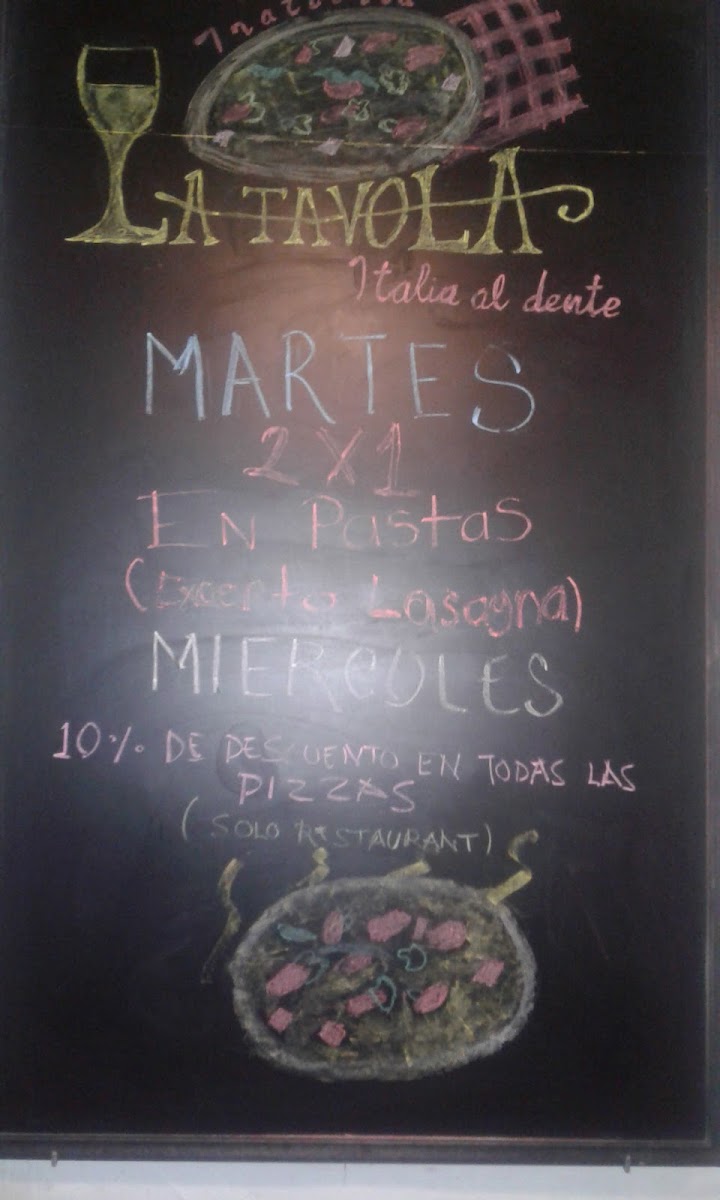 Trattoria
LA TAVOLA
Italia al dente
MARTES
2X1
En Pastas
(Excepto Lasagna)
MIERCOLES
10% DE DESCUENTO EN TODAS LAS
PIZZAS
(SOLO RESTAURANT)